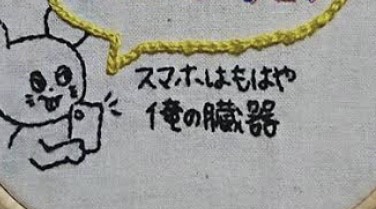 スマホはもはや
俺の臓器